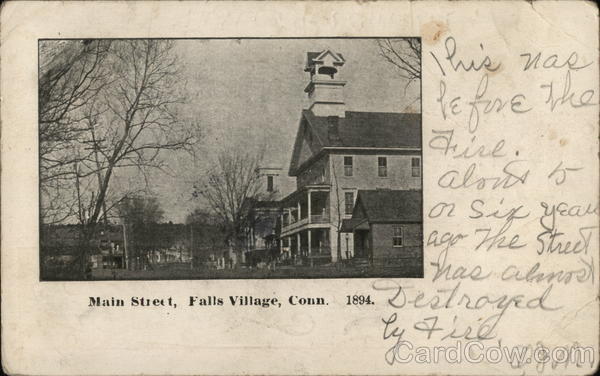 This was
before The
Fire.
about 5
or Six year
ago The Street
was almost
Destroyed
by Fire,
Main Street, Falls Village, Conn. 1894.
CardCow.com